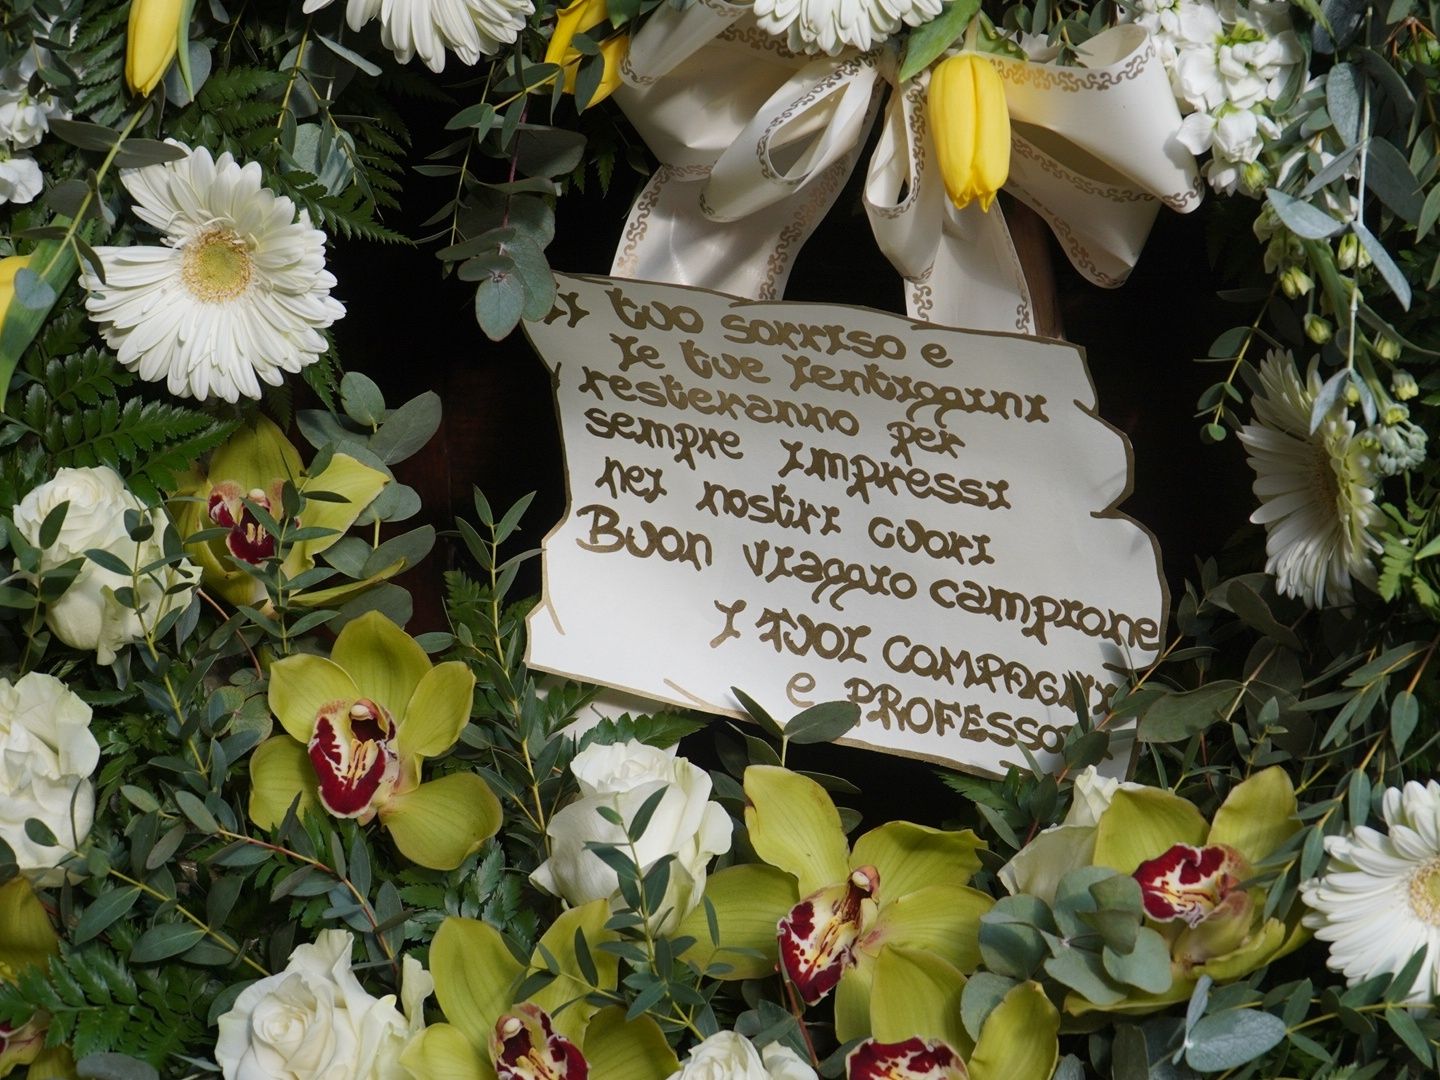 Il tuo sorriso e
le tue lentiggini
resteranno per
sempre impressi
nei nostri cuori
Buon viaggio campione
I TUOI COMPAGNI
e PROFESSORI